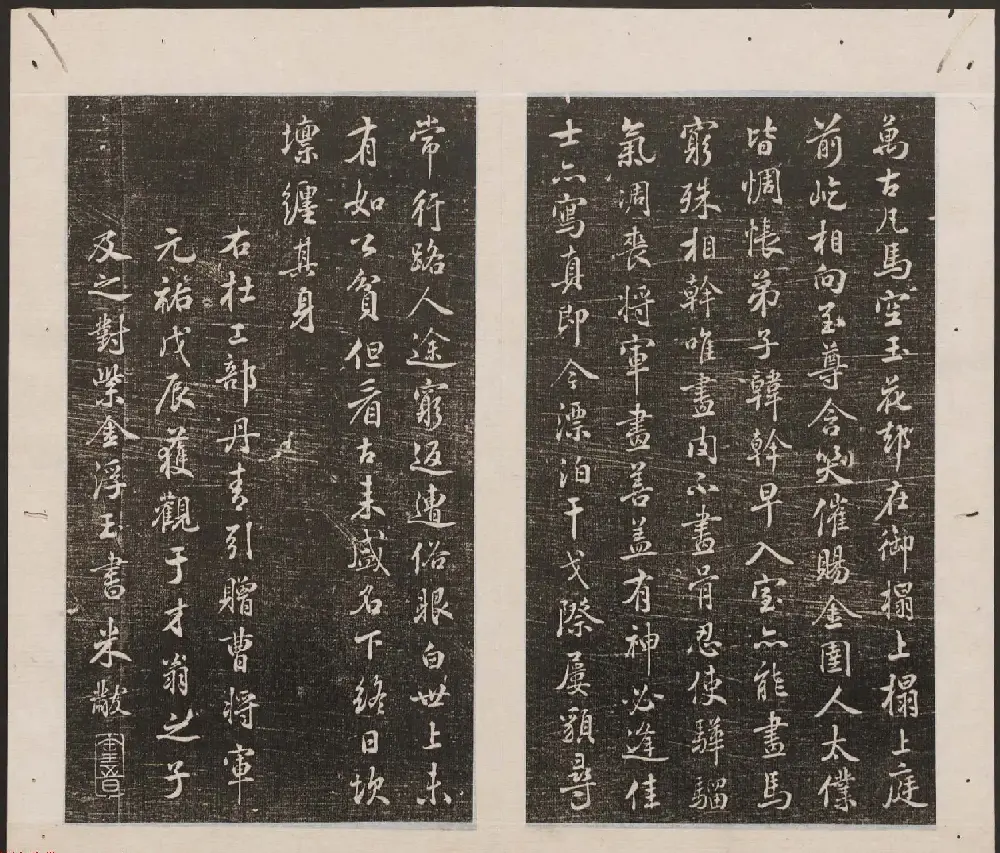 萬古凡馬空玉花却在御榻上榻上庭
前屹相向至尊含笑催賜金圉人太僕
皆惆悵弟子韓幹早入室亦能畫馬
窮殊相幹唯畫肉不畫骨忍使驊騮
氣凋喪將軍畫善蓋有神必逢佳
士亦寫真即今漂泊干戈際屢貌尋
常行路人途窮返遭俗眼白世上未
有如公貧但看古来盛名下終日坎
壈纏其身
右杜工部丹青引贈曹將軍
元祐戊辰獲觀于才翁之子
及之對紫金浮玉書 米黻